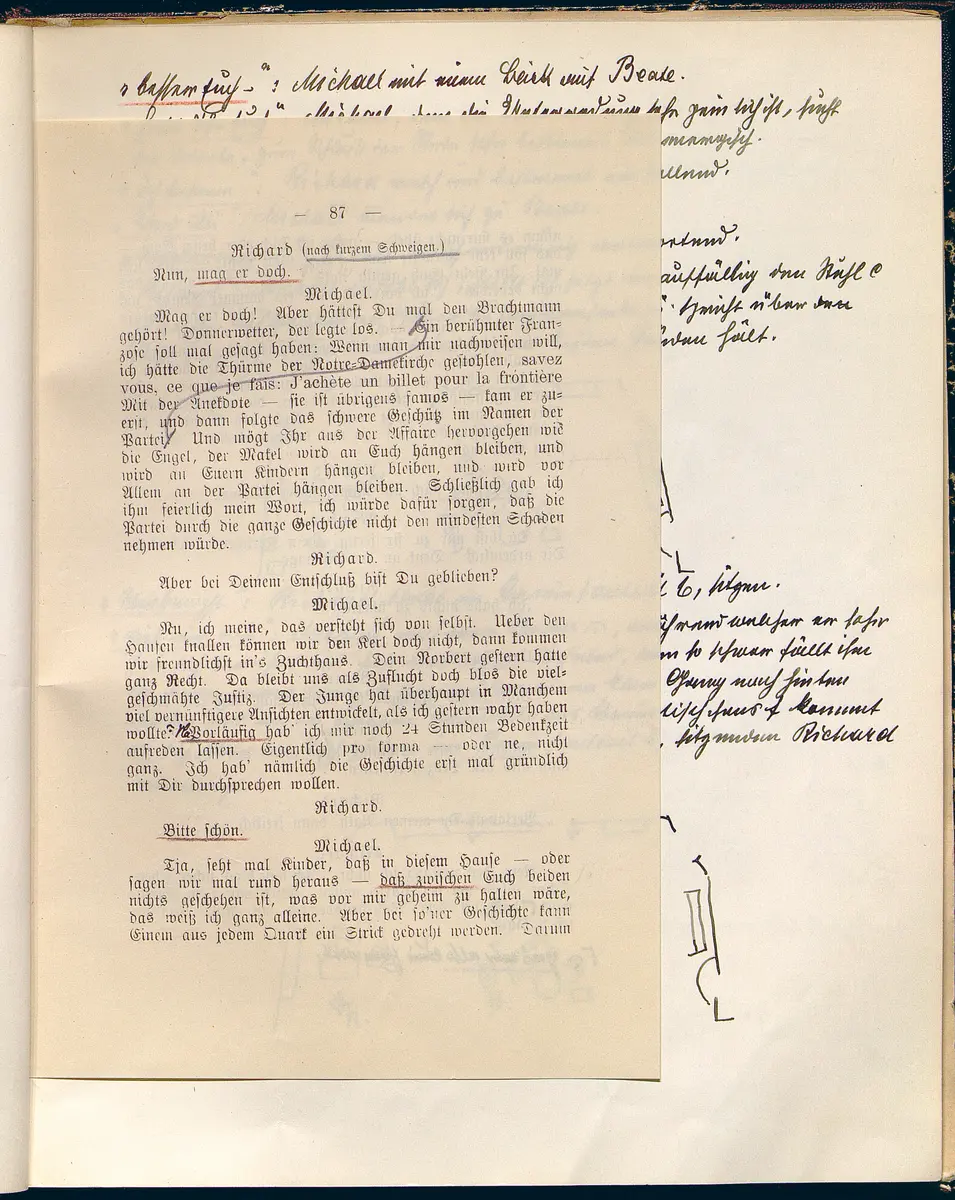 „besser Euch –“: Michael mit einem Blick auf Beate.
Michael, dem die Unterredung sehr peinlich ist, sucht
energisch.
— 87 —
Richard (nach kurzem Schweigen.)
Nun, mag er doch.
Michael.
Mag er doch! Aber hättest Du mal den Brachtmann
gehört! Donnerwetter, der legte los. — Ein berühmter Fran-
zose soll mal gesagt haben: Wenn man mir nachweisen will,
ich hätte die Thürme der Notre-Damekirche gestohlen, savez
vous, ce que je fais: J'achète un billet pour la frontière
Mit der Anekdote — sie ist übrigens famos — kam er zu-
erst, und dann folgte das schwere Geschütz im Namen der
Partei. Und mögt Ihr aus der Affaire hervorgehen wie
die Engel, der Makel wird an Euch hängen bleiben, und
wird an Euern Kindern hängen bleiben, und wird vor
Allem an der Partei hängen bleiben. Schließlich gab ich
ihm feierlich mein Wort, ich würde dafür sorgen, daß die
Partei durch die ganze Geschichte nicht den mindesten Schaden
nehmen würde.
Richard.
Aber bei Deinem Entschluß bist Du geblieben?
Michael.
Nu, ich meine, das versteht sich von selbst. Ueber den
Haufen knallen können wir den Kerl doch nicht, dann kommen
wir freundlichst in's Zuchthaus. Dein Norbert gestern hatte
ganz Recht. Da bleibt uns als Zuflucht doch blos die viel-
geschmähte Justiz. Der Junge hat überhaupt in Manchem
viel vernünftigere Ansichten entwickelt, als ich gestern wahr haben
wollte. Vorläufig hab' ich mir noch 24 Stunden Bedenkzeit
aufreden lassen. Eigentlich pro forma — oder ne, nicht
ganz. Ich hab' nämlich die Geschichte erst mal gründlich
mit Dir durchsprechen wollen.
Richard.
Bitte schön.
Michael.
Tja, seht mal Kinder, daß in diesem Hause — oder
sagen wir mal rund heraus — daß zwischen Euch beiden
nichts geschehen ist, was vor mir geheim zu halten wäre,
das weiß ich ganz alleine. Aber bei so'ner Geschichte kann
Einem aus jedem Quark ein Strick gedreht werden. Darum
auffällig den Stuhl c
spricht über den
hält.
sitzen.
während welcher er sehr
so schwer fällt ihm
Gang nach hinten
kommt
sitzenden Richard